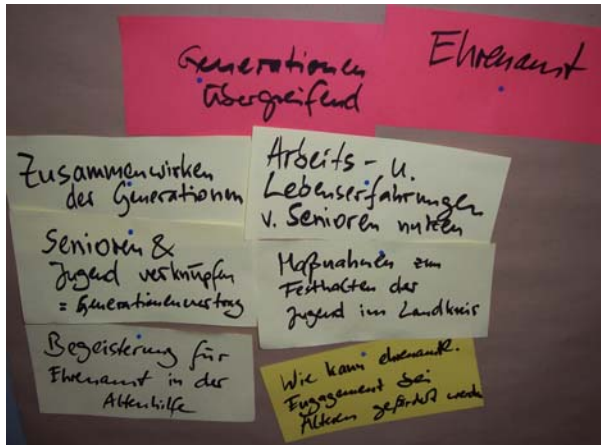 Generationen
Übergreifend
Ehrenamt
Zusammenwirken
der Generationen
Arbeits- u.
Lebenserfahrungen
v. Senioren nutzen
Senioren &
Jugend verknüpfen
= Generationenvertrag
Maßnahmen zum
Festhalten der
Jugend im Landkreis
Begeisterung für
Ehrenamt in der
Altenhilfe
Wie kann ehrenamtl.
Engagement bei
Älteren gefördert werden